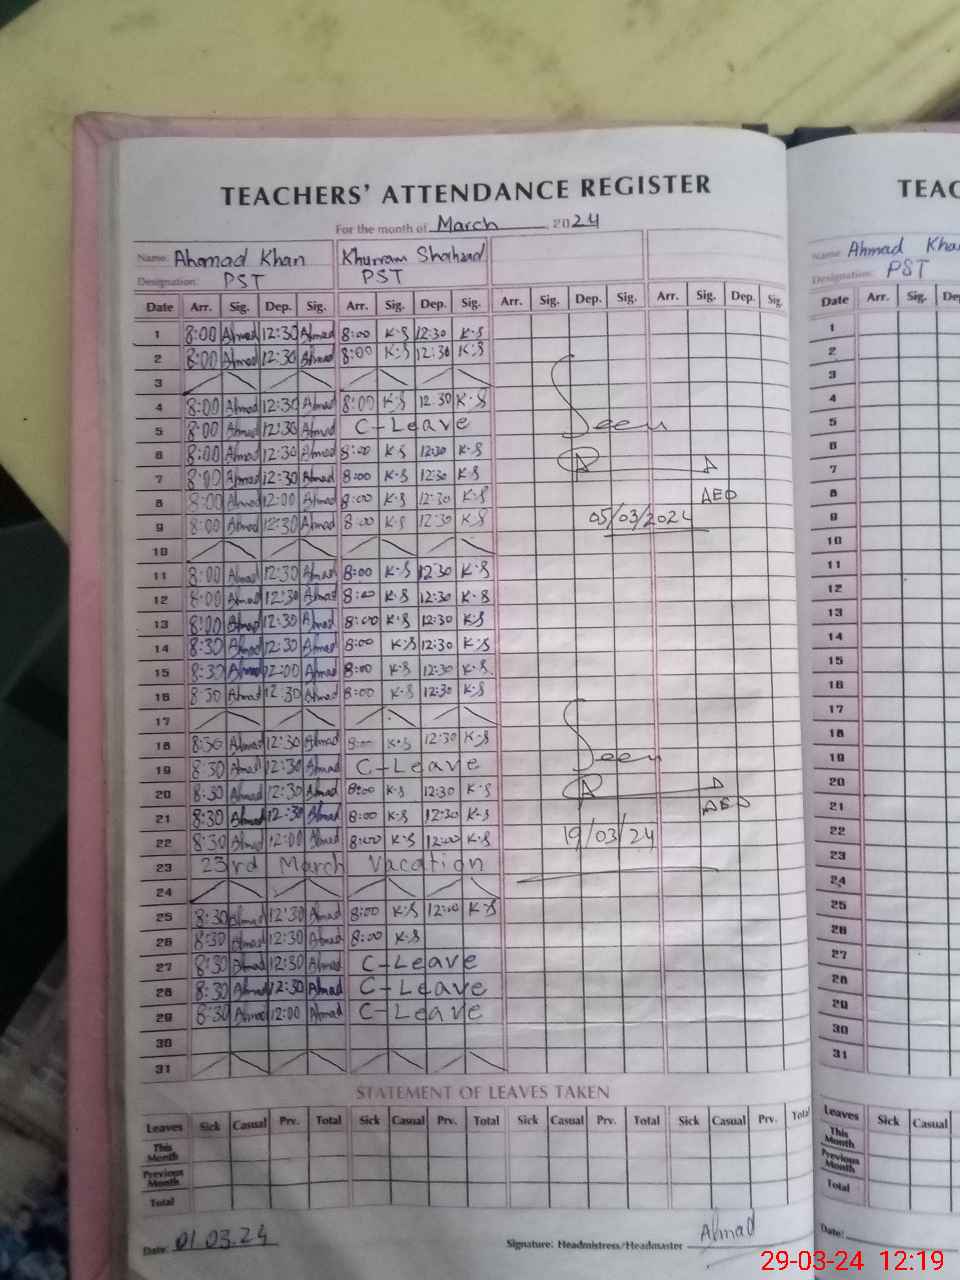 TEACHERS' ATTENDANCE REGISTER TEAC
For the month of March, 2024
Name: Ahamad Khan Khurram Shahzad Name: Ahmad Kha
Designation: PST PST Designation: PST
Date Arr. Sig. Dep. Sig. Arr. Sig. Dep. Sig. Arr. Sig. Dep. Sig. Arr. Sig. Dep. Sig. Date Arr. Sig. De
1 8:00 Ahmad 12:30 Ahmad 8:00 K·S 12:30 K·S 1
2 8:00 Ahmad 12:30 Ahmad 8:00 K·S 12:30 K·S 2
3 3
4 8:00 Ahmad 12:30 Ahmad 8:00 K·S 12:30 K·S 4
5 8:00 Ahmad 12:30 Ahmad C-Leave Seen 5
6 8:00 Ahmad 12:30 Ahmad 8:00 K·S 12:30 K·S 6
7 8:00 Ahmad 12:30 Ahmad 8:00 K·S 12:30 K·S 7
8 8:00 Ahmad 12:00 Ahmad 8:00 K·S 12:30 K·S AEO 8
9 8:00 Ahmad 12:30 Ahmad 8:00 K·S 12:30 K·S 05/03/2024 9
10 10
11 8:00 Ahmad 12:30 Ahmad 8:00 K·S 12:30 K·S 11
12 8:00 Ahmad 12:30 Ahmad 8:00 K·S 12:30 K·S 12
13 8:00 Ahmad 12:30 Ahmad 8:00 K·S 12:30 K·S 13
14 8:30 Ahmad 12:30 Ahmad 8:00 K·S 12:30 K·S 14
15 8:30 Ahmad 12:00 Ahmad 8:00 K·S 12:30 K·S 15
16 8:30 Ahmad 12:30 Ahmad 8:00 K·S 12:30 K·S 16
17 17
18 8:30 Ahmad 12:30 Ahmad 8:00 K·S 12:30 K·S 18
19 8:30 Ahmad 12:30 Ahmad C-Leave Seen 19
20 8:30 Ahmad 12:30 Ahmad 8:00 K·S 12:30 K·S 20
21 8:30 Ahmad 12:30 Ahmad 8:00 K·S 12:30 K·S AEO 21
22 8:30 Ahmad 12:00 Ahmad 8:00 K·S 12:00 K·S 19/03/24 22
23 23rd March Vacation 23
24 24
25 8:30 Ahmad 12:30 Ahmad 8:00 K·S 12:00 K·S 25
26 8:30 Ahmad 12:30 Ahmad 8:00 K·S 26
27 8:30 Ahmad 12:30 Ahmad C-Leave 27
28 8:30 Ahmad 12:30 Ahmad C-Leave 28
29 8:30 Ahmad 12:00 Ahmad C-Leave 29
30 30
31 31
STATEMENT OF LEAVES TAKEN
Leaves Sick Casual Prv. Total Sick Casual Prv. Total Sick Casual Prv. Total Sick Casual Prv. Total Leaves Sick Casual
This Month This Month
Previous Month Previous Month
Total Total
Date: 01.03.24 Signature: Headmistress/Headmaster Ahmad Date:
29-03-24 12:19